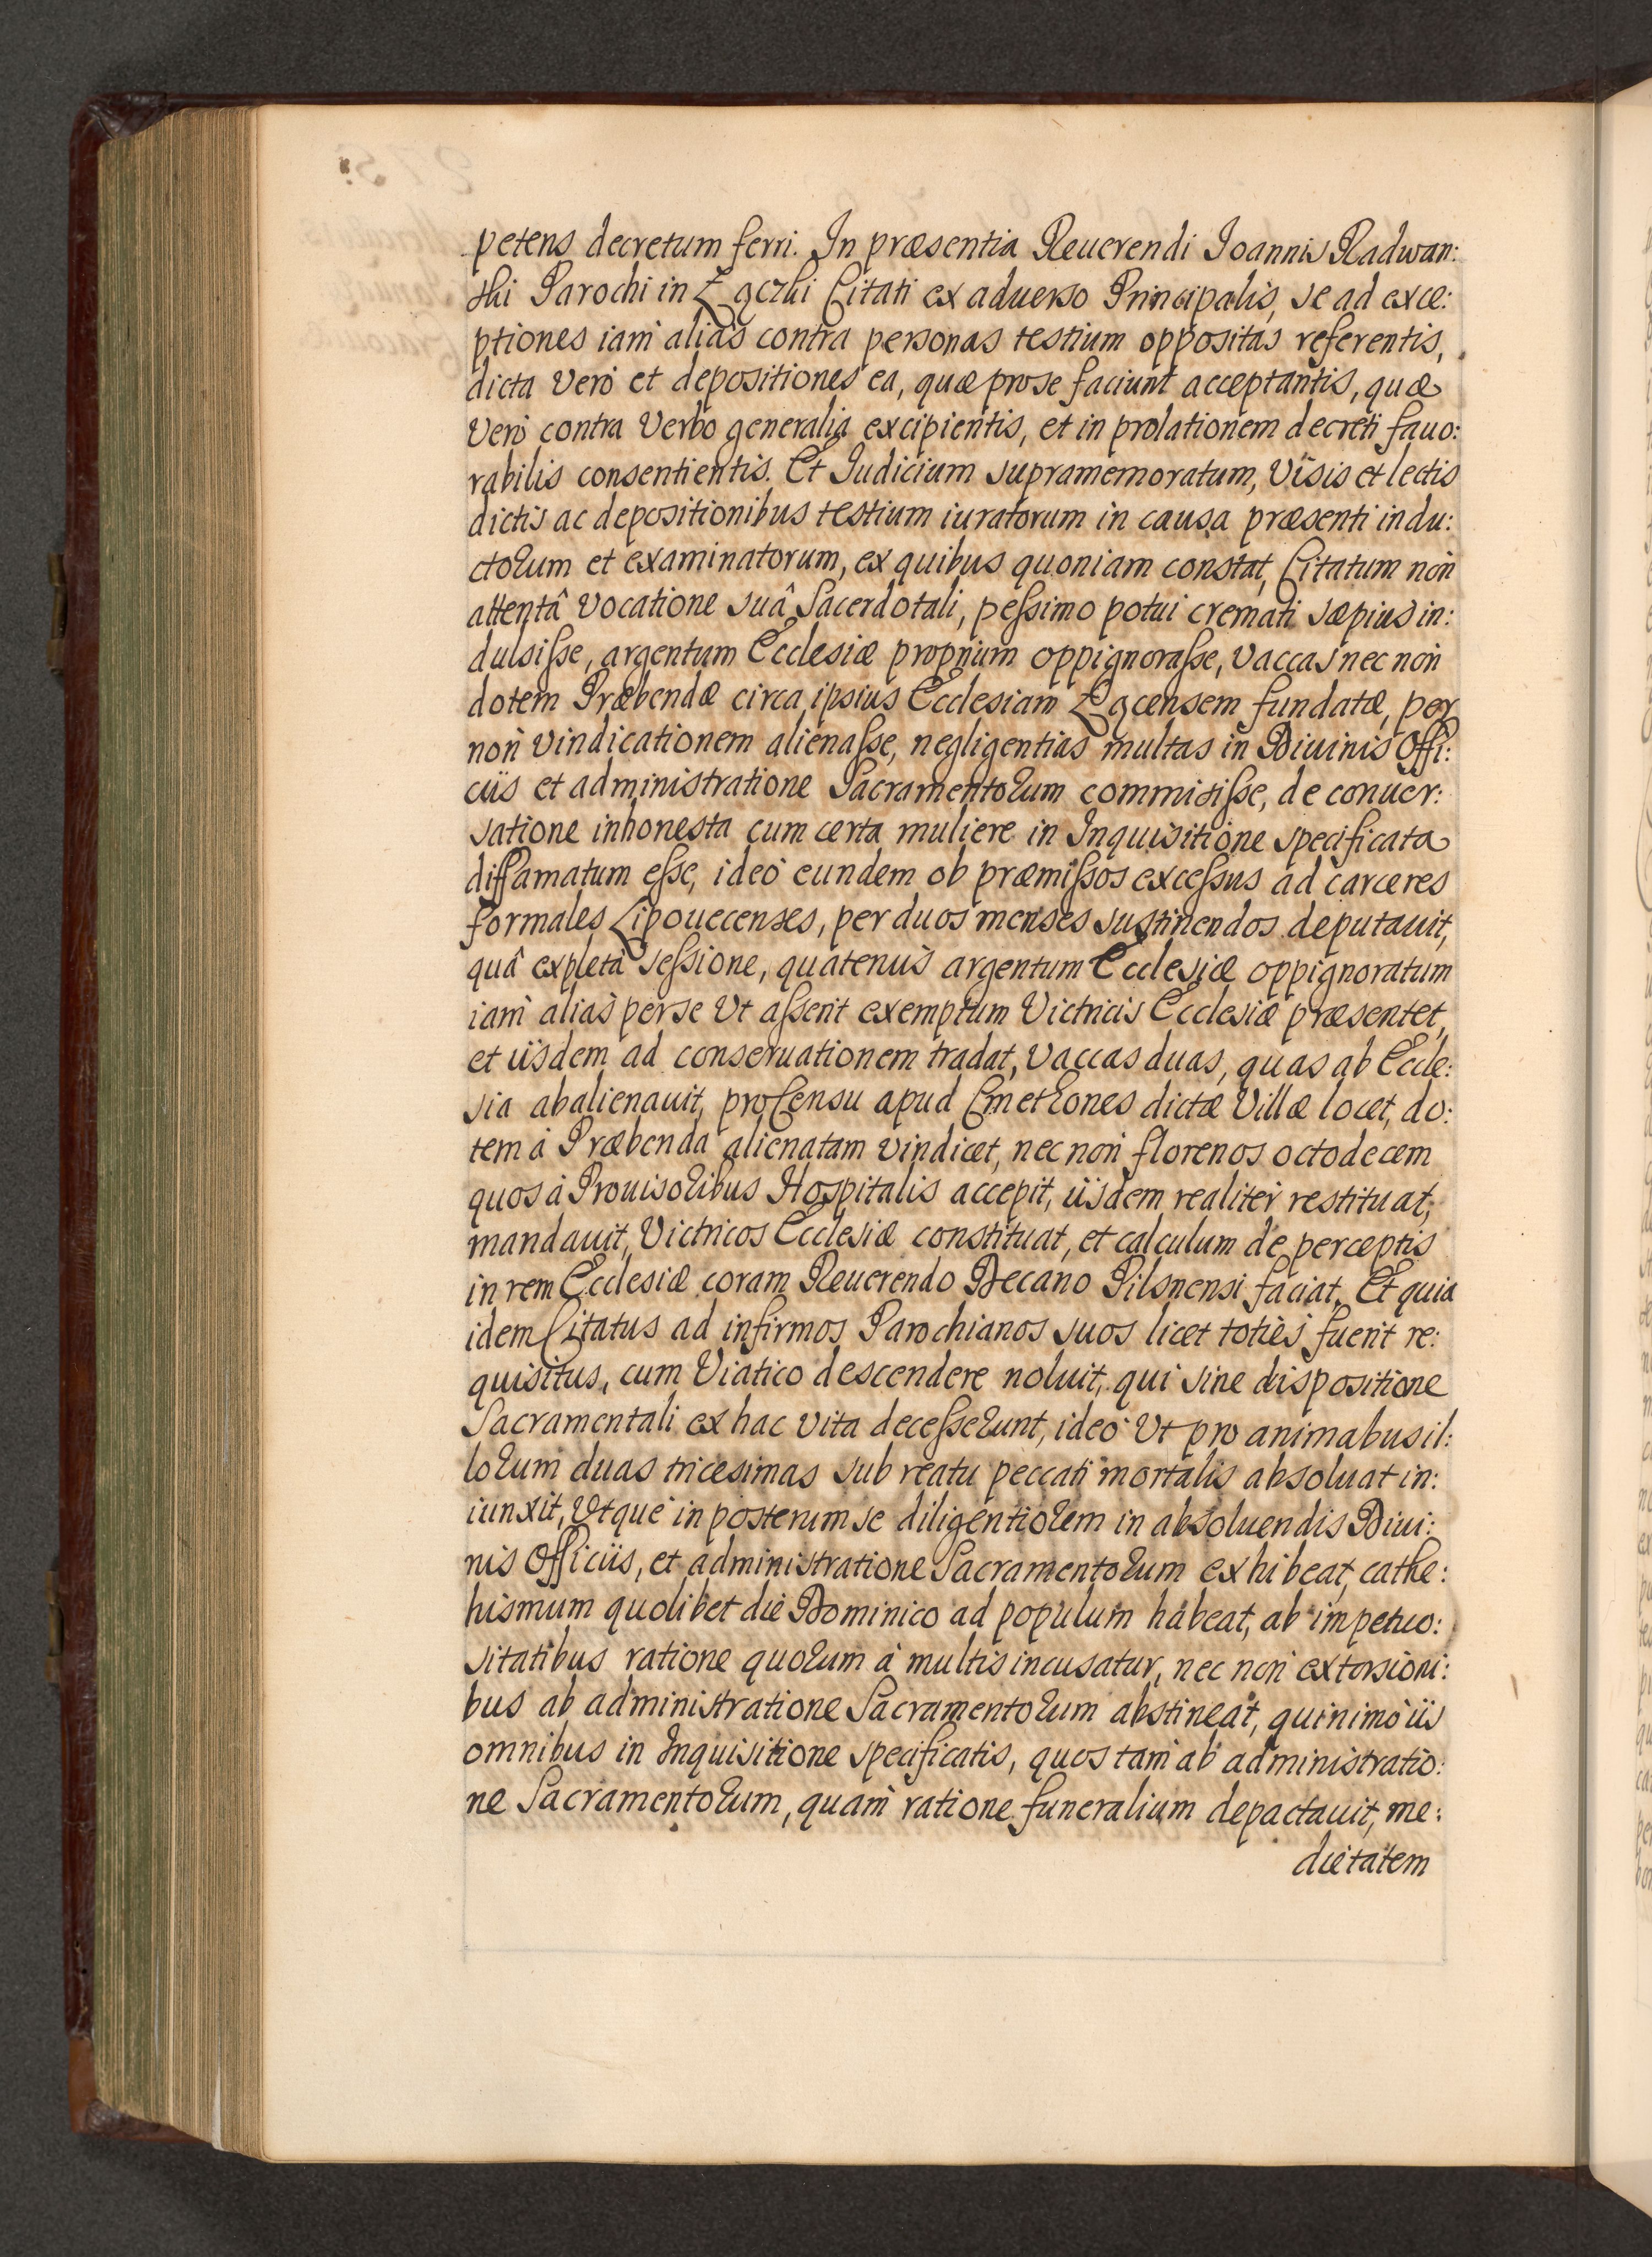 petens decretum ferri. In præsentia Reuerendi Joannis Radwan:
ski Parochi in Łączki Citati ex aduerso Principalis, se ad exce:
ptiones iam alias contra personas testium oppositas referentis,
dicta verò et depositiones ea, quæ pro se faciunt acceptantis, quæ
verò contra verbo generalia excipientis, et in prolationem decreti fauo:
rabilis consentientis. Et Iudicium supramemoratum, visis et lectis
dictis ac depositionibus testium iuratorum in causa præsenti indu:
ctorum et examinatorum, ex quibus quoniam constat, Citatum non
attentâ vocatione suâ Sacerdotali, pessimo potui cremati sæpius in:
dulsisse, argentum Ecclesiæ proprium oppignorasse, vaccas nec non
dotem Præbendæ circa ipsius Ecclesiam Łącensem fundatæ, per
non vindicationem alienasse, negligentias multas in Diuinis Offi:
ciis et administratione Sacramentorum commisisse, de conuer:
satione inhonesta cum certa muliere in Inquisitione specificata
diffamatum esse, ideò eundem ob præmissos excessus ad carceres
formales Lipouecenses, per duos menses sustinendos deputauit,
quâ expletâ sessione, quatenus argentum Ecclesiæ oppignoratum
iam alias per se vt asserit exemptum Victricis Ecclesiæ præsentet,
et iisdem ad conseruationem tradat, vaccas duas, quas ab Eccle:
sia abalienauit, pro Censu apud Cmethones dictæ Villæ locet, do:
tem à Præbenda alienatam vindicet, nec non florenos octodecem
quos à Prouisoribus Hospitalis accepit, iisdem realiter restituat,
mandauit, Victricos Ecclesiæ constituat, et calculum de perceptis
in rem Ecclesiæ coram Reuerendo Decano Pilsnensi faciat. Et quia
idem Citatus ad infirmos Parochianos suos licet toties fuerit re:
quisitus, cum Viatico descendere noluit, qui sine dispositione
Sacramentali ex hac vita decesserunt, ideò vt pro animabus il:
lorum duas tricesimas sub reatu peccati mortalis absoluat in:
iunxit, vtque in posterum se diligentiorem in absoluendis Diui:
nis Officiis, et administratione Sacramentorum exhibeat, cathe:
hismum quolibet die Dominico ad populum habeat, ab impetuo:
sitatibus ratione quorum à multis incusatur, nec non extorsioni:
bus ab administratione Sacramentorum abstineat, quinimò iis
omnibus in Inquisitione specificatis, quos tam ab administratio:
ne Sacramentorum, quam ratione funeralium depactauit, me:
dietatem